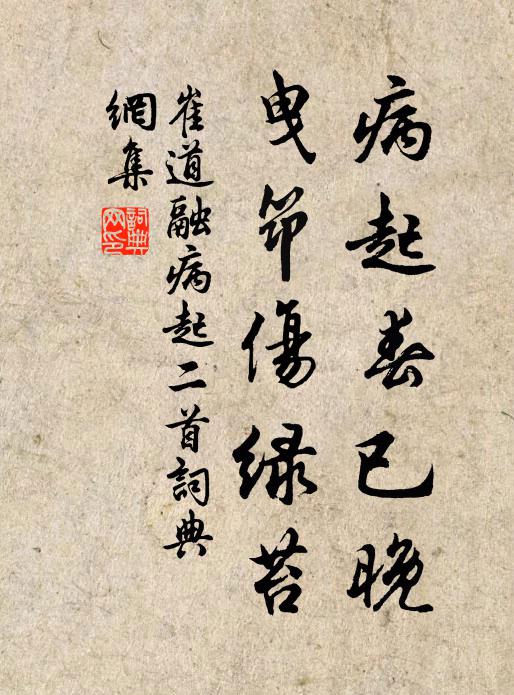 病起春已晚
曳筇傷綠苔
崔道融病起二首詞典
網集
詞典網印